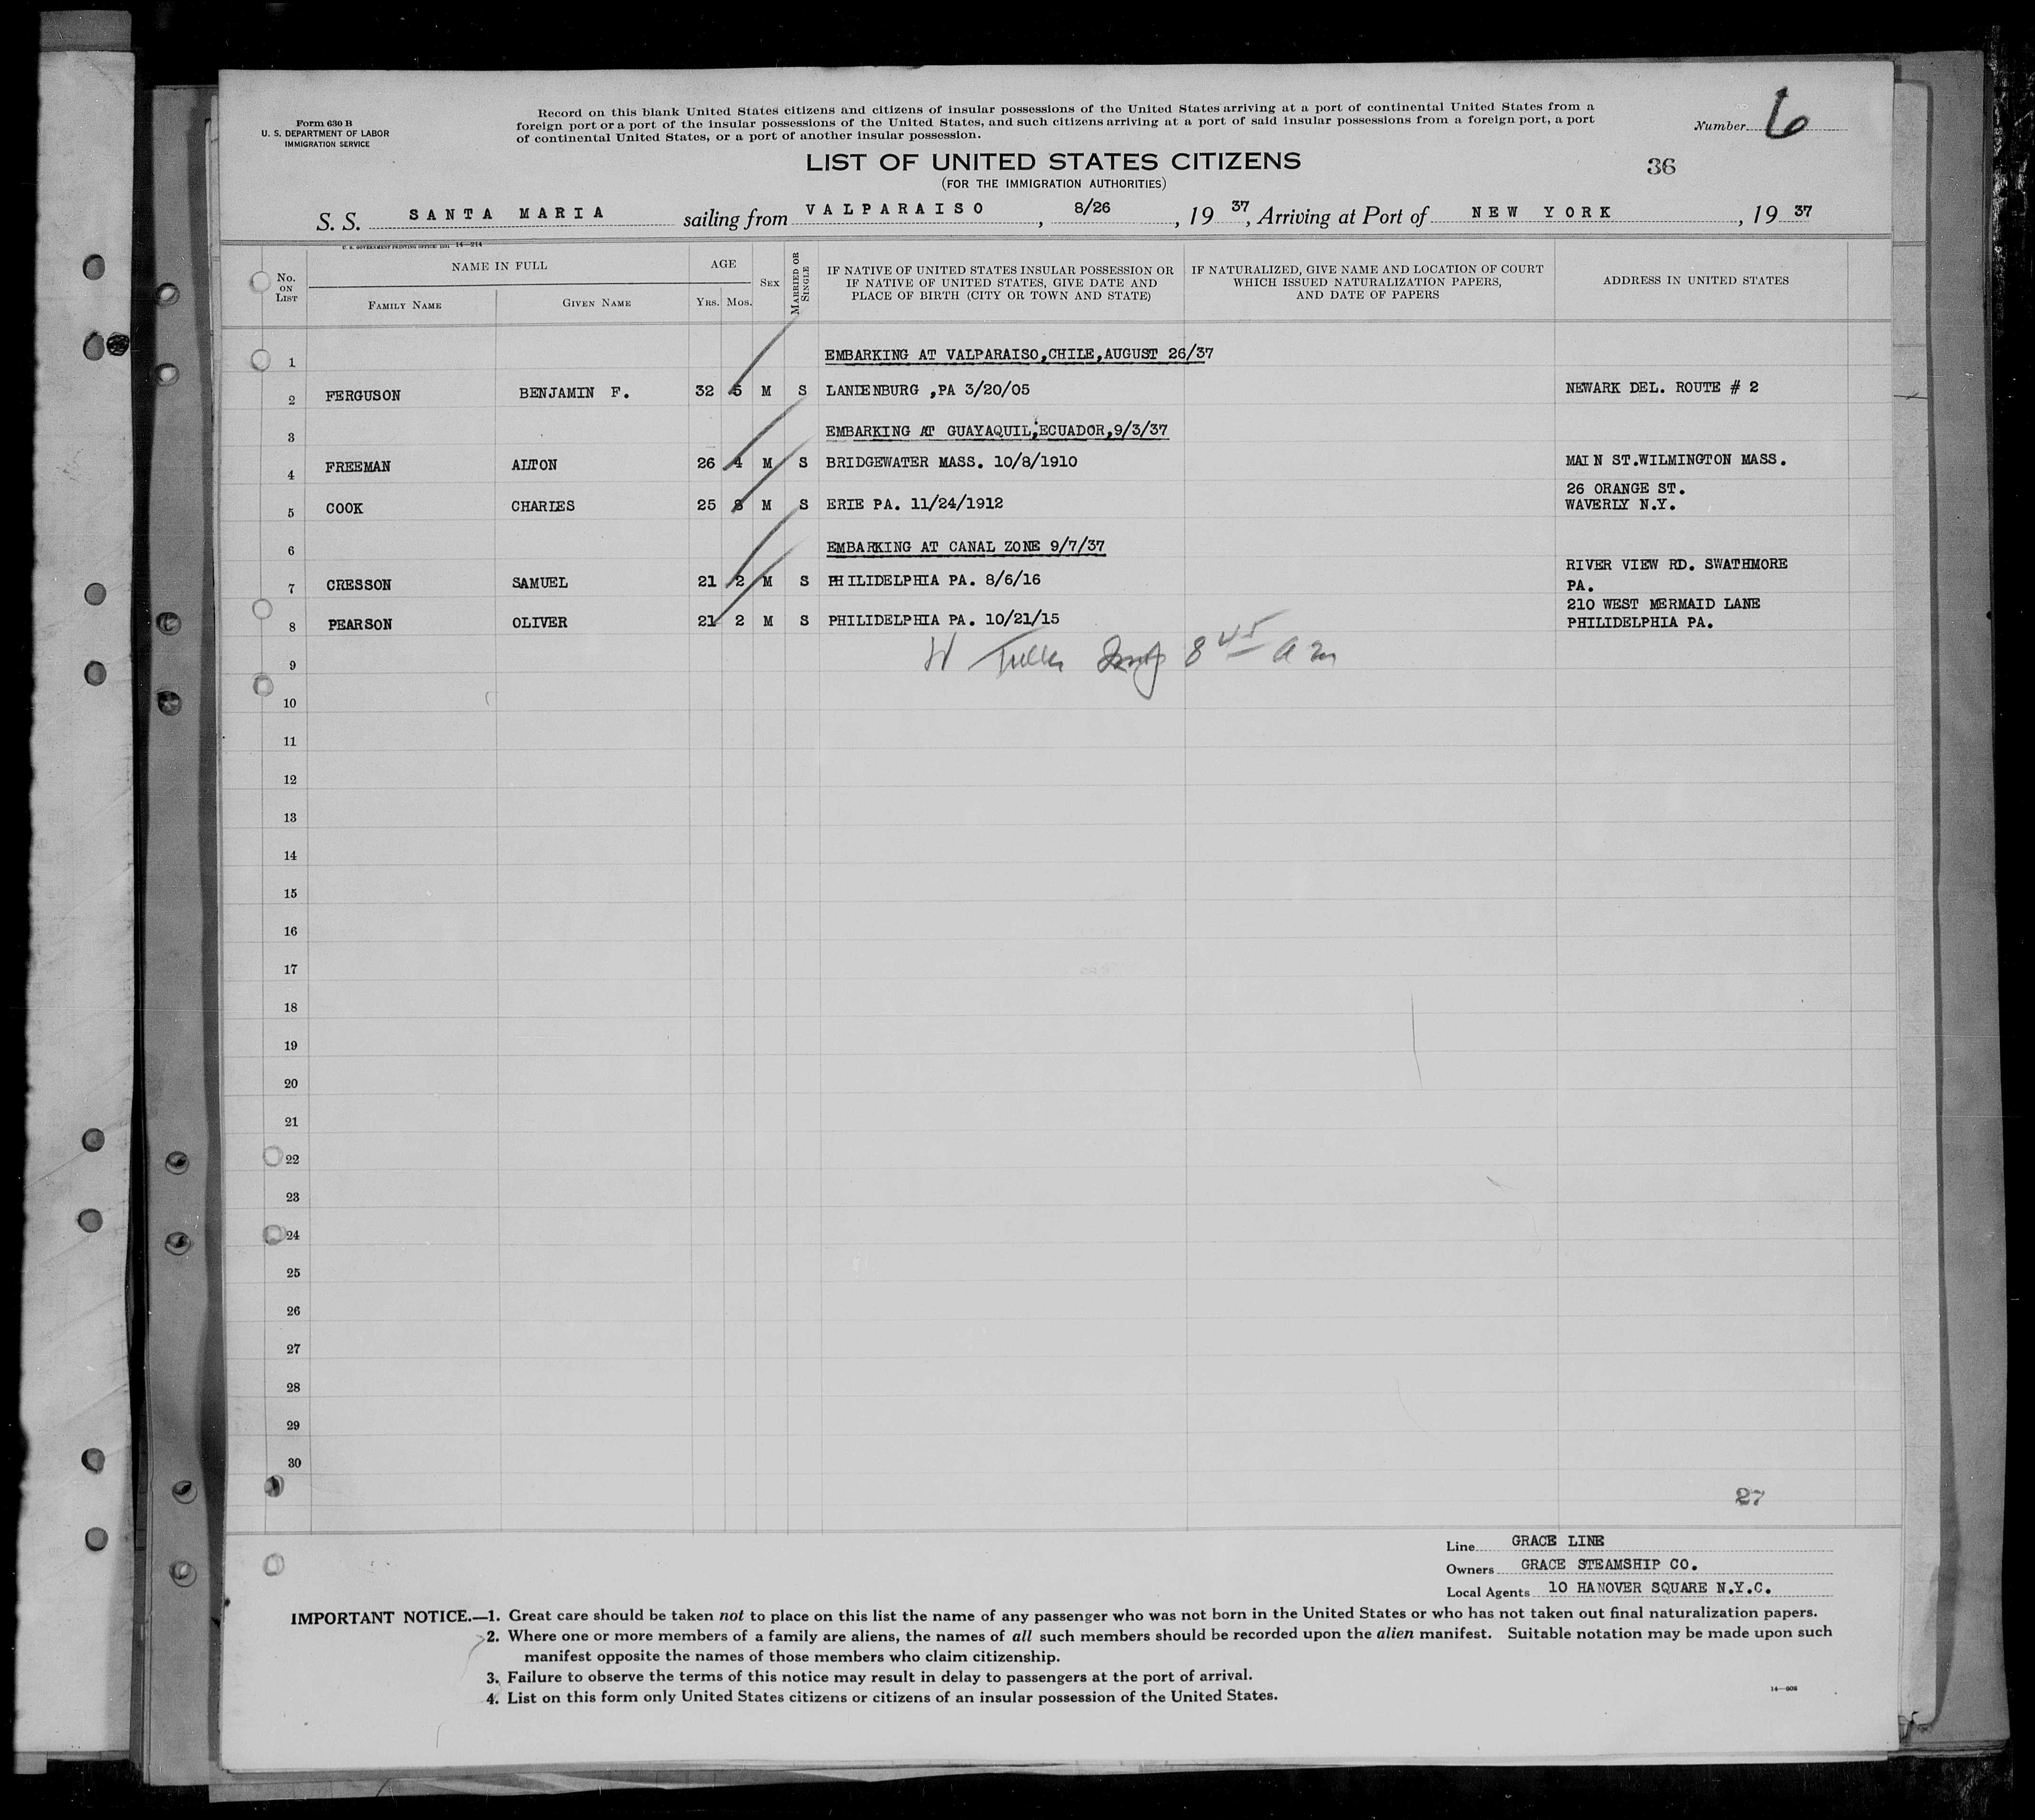 Form 630 B
U. S. DEPARTMENT OF LABOR
IMMIGRATION SERVICE
Record on this blank United States citizens and citizens of insular possessions of the United States arriving at a port of continental United States from a
foreign port or a port of the insular possessions of the United States, and such citizens arriving at a port of said insular possessions from a foreign port, a port
of continental United States, or a port of another insular possession.
Number 6
LIST OF UNITED STATES CITIZENS
(FOR THE IMMIGRATION AUTHORITIES)
36
S. S. SANTA MARIA sailing from VALPARAISO, 8/26, 19 37, Arriving at Port of NEW YORK, 19 37
U. S. GOVERNMENT PRINTING OFFICE: 1931 14—214
No. ON LIST
NAME IN FULL
FAMILY NAME
GIVEN NAME
AGE
YRS. MOS.
SEX
MARRIED OR SINGLE
IF NATIVE OF UNITED STATES INSULAR POSSESSION OR
IF NATIVE OF UNITED STATES, GIVE DATE AND
PLACE OF BIRTH (CITY OR TOWN AND STATE)
IF NATURALIZED, GIVE NAME AND LOCATION OF COURT
WHICH ISSUED NATURALIZATION PAPERS,
AND DATE OF PAPERS
ADDRESS IN UNITED STATES
1 EMBARKING AT VALPARAISO,CHILE,AUGUST 26/37
2 FERGUSON BENJAMIN F. 32 5 M S LANDENBURG ,PA 3/20/05 NEWARK DEL. ROUTE # 2
3 EMBARKING AT GUAYAQUIL,ECUADOR,9/3/37
4 FREEMAN ALTON 26 4 M S BRIDGEWATER MASS. 10/8/1910 MAIN ST.WILMINGTON MASS.
5 COOK CHARLES 25 8 M S ERIE PA. 11/24/1912 26 ORANGE ST.
WAVERLY N.Y.
6 EMBARKING AT CANAL ZONE 9/7/37
7 CRESSON SAMUEL 21 2 M S PHILIDELPHIA PA. 8/6/16 RIVER VIEW RD. SWATHMORE
PA.
8 PEARSON OLIVER 21 2 M S PHILIDELPHIA PA. 10/21/15 210 WEST MERMAID LANE
PHILIDELPHIA PA.
9 8 45 a m
10
11
12
13
14
15
16
17
18
19
20
21
22
23
24
25
26
27
28
29
30
27
Line GRACE LINE
Owners GRACE STEAMSHIP CO.
Local Agents 10 HANOVER SQUARE N.Y.C.
IMPORTANT NOTICE.—1. Great care should be taken not to place on this list the name of any passenger who was not born in the United States or who has not taken out final naturalization papers.
2. Where one or more members of a family are aliens, the names of all such members should be recorded upon the alien manifest. Suitable notation may be made upon such
manifest opposite the names of those members who claim citizenship.
3. Failure to observe the terms of this notice may result in delay to passengers at the port of arrival.
4. List on this form only United States citizens or citizens of an insular possession of the United States.